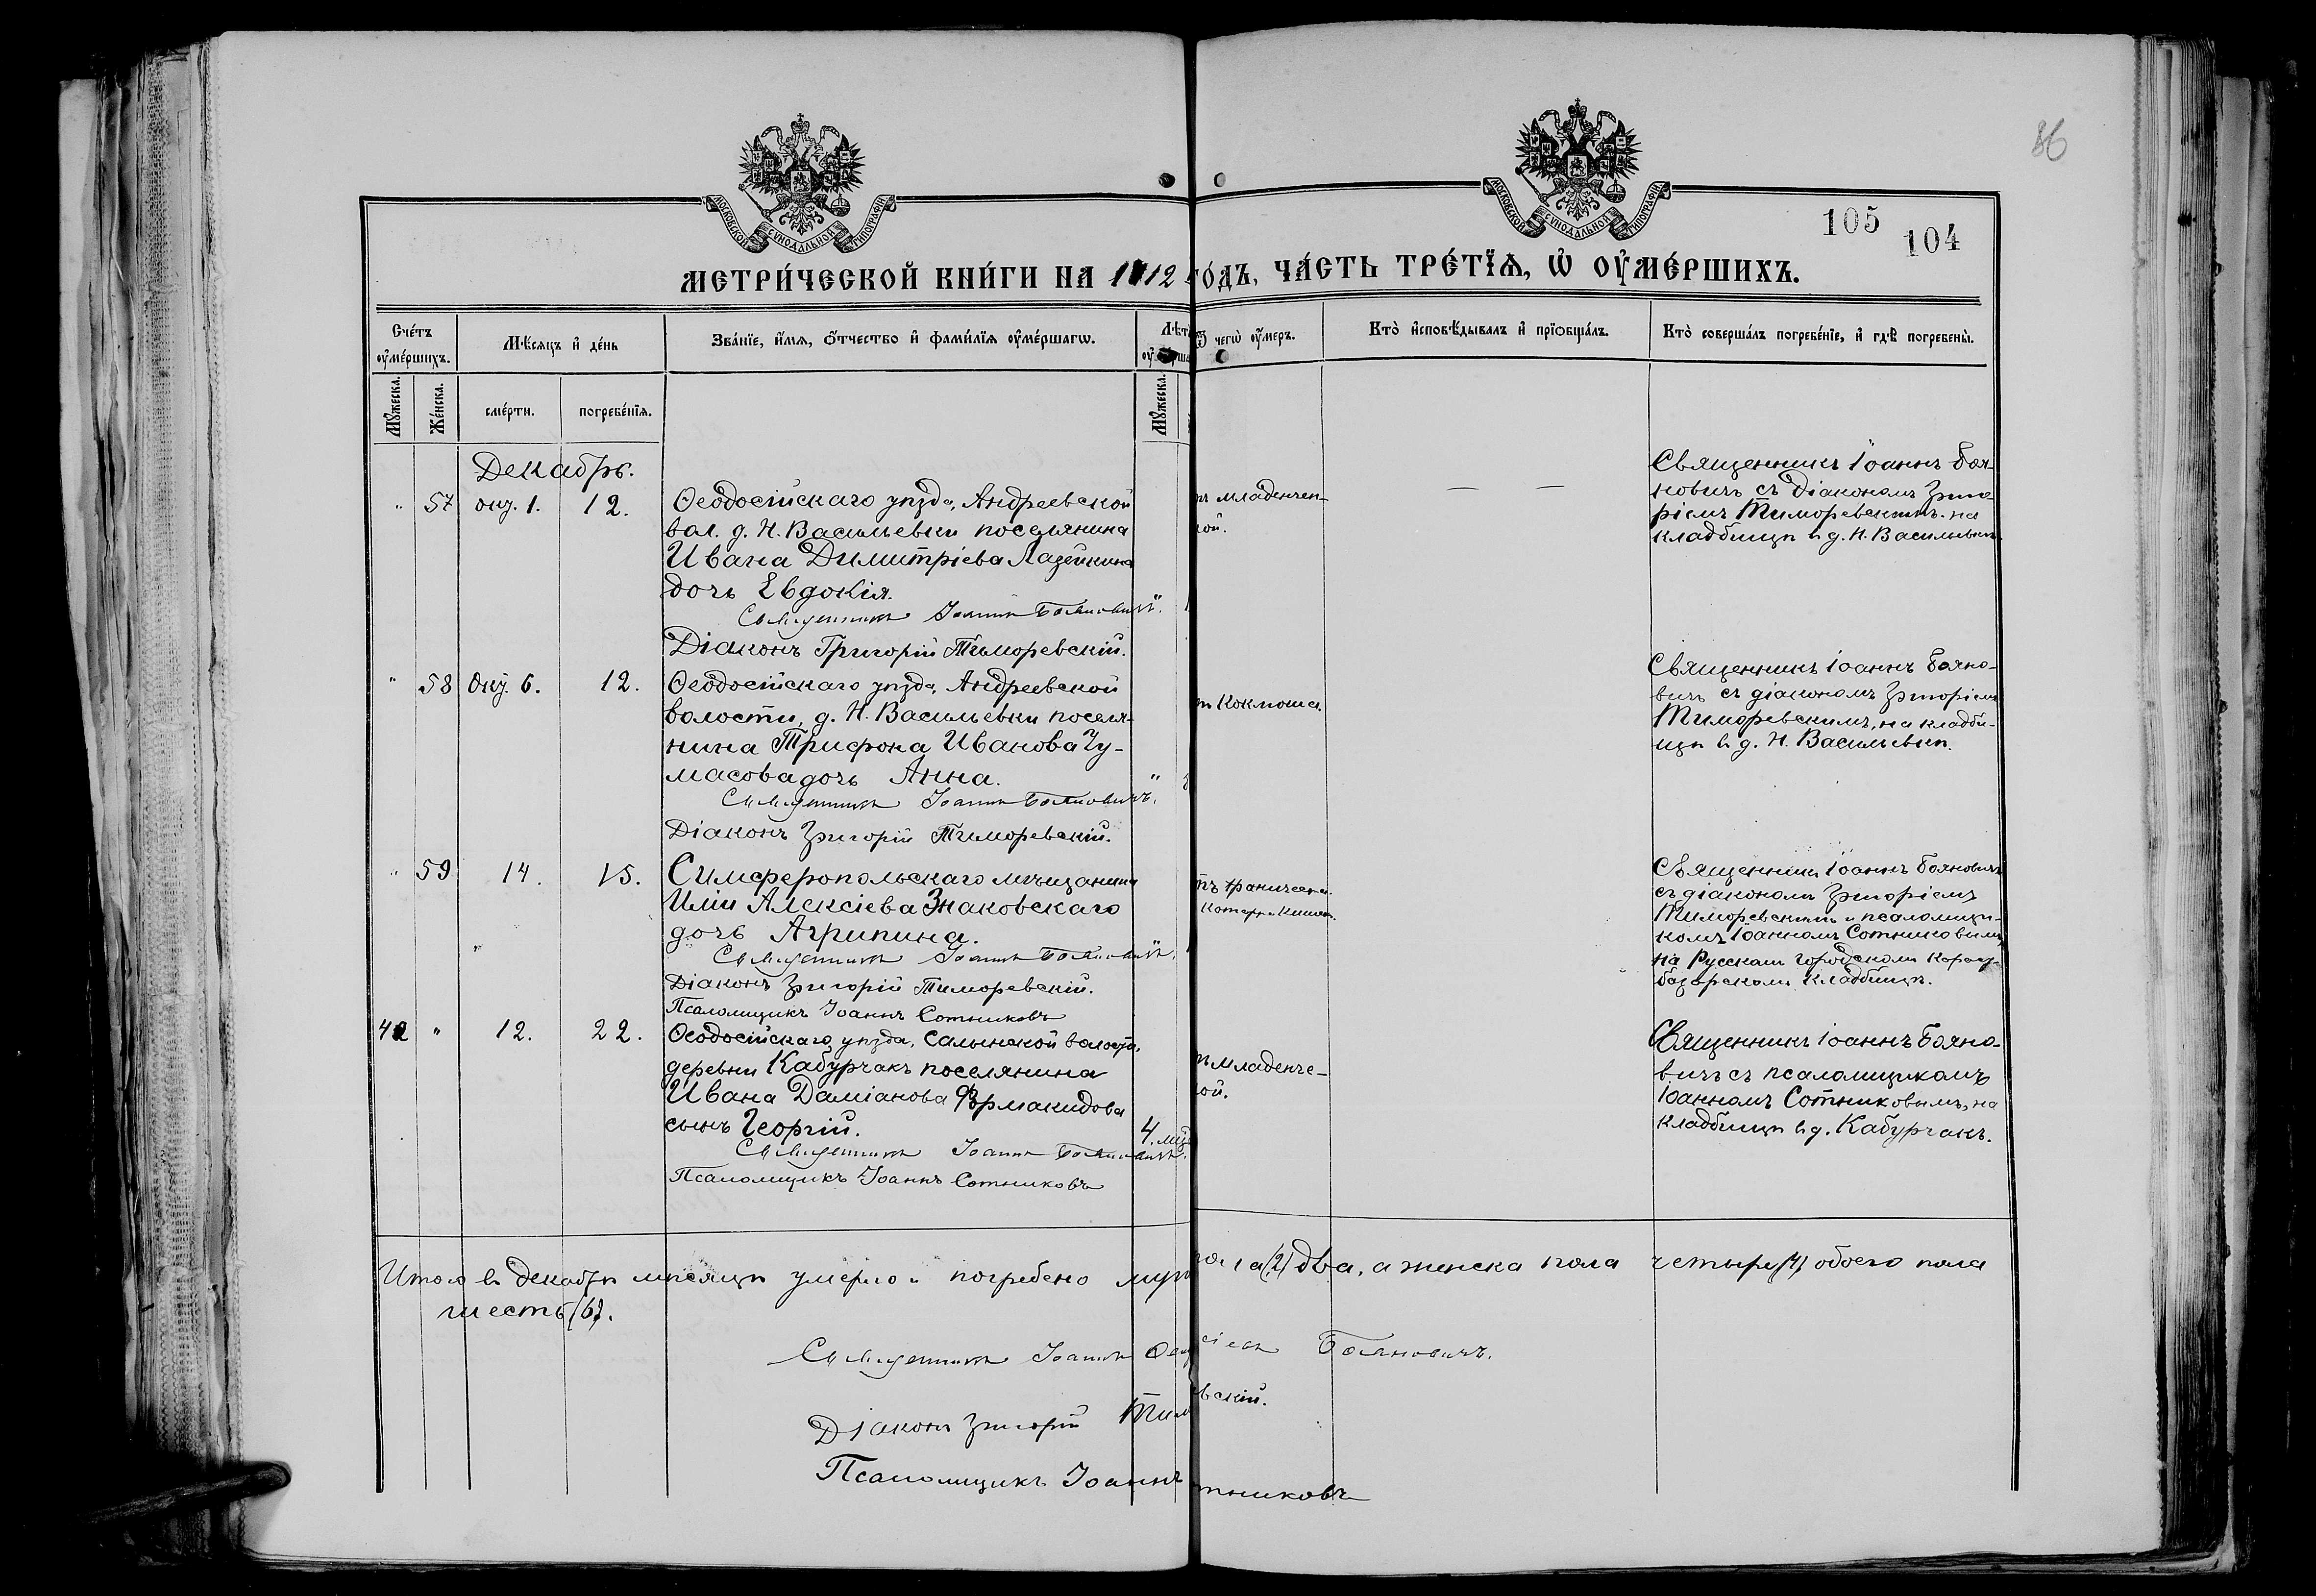 86
МОСКОВСКОЙ СѴНОДАЛЬНОЙ ТИПОГРАФІИ
МОСКОВСКОЙ СѴНОДАЛЬНОЙ ТИПОГРАФІИ
105
104
МЕТРИ́ЧЕСКОЙ КНИ́ГИ НА 1912
го́дъ, ЧА́СТЬ ТРЕ́ТЇѦ, Ѡ҆ ОУ҆МЕ́РШИХЪ.
Сче́тъ оу҆ме́ршихъ.
Мѣ́сѧцъ и҆ де́нь
Зва́нїе, и҆́мѧ, ѻ҆́тчество и҆ фамі́лїѧ оу҆ме́ршагѡ.
Лѣт
Ѿ чегѡ̀ оу҆́меръ.
Кто̀ и҆сповѣ́дывалъ и҆ прїѡбща́лъ.
Кто̀ соверша́лъ погребе́нїе, и҆ гдѣ̀ погребены̀.
Мꙋ́жеска.
Же́нска.
сме́рти.
погребе́нїѧ.
Мꙋ́жеска.
Декабрь.
" 57 окт. 1. 12.
Ѳеодосійскаго уѣзда, Андреевской
вол. д. Н. Васильевки поселянина
Ивана Димитріева Лазейкина
дочь Евдокія.
Священникъ Іоаннъ Бояновичъ.
Діаконъ Григорій Тиморевскій.
младенчен-
кой.
— —
Священникъ Іоаннъ Боя-
новичъ съ діакономъ Григо-
ріемъ Тиморевскимъ. на
кладбищѣ въ д. Н. Васильевкѣ.
" 58 6. 12.
Ѳеодосійскаго уѣзда, Андреевской
волости, д. Н. Васильевки поселя-
нина Трифона Иванова Чу-
масова дочь Анна. "
Священникъ Іоаннъ Бояновичъ.
Діаконъ Григорій Тиморевскій.
Коклюша.
Священникъ Іоаннъ Бояно-
вичъ съ діакономъ Григоріемъ
Тиморевскимъ, на кладби-
щѣ въ д. Н. Васильевкѣ.
" 59 14. 15.
Симферопольскаго мѣщанина
Иліи Алексіева Знаковскаго
дочь Агрипина.
Священникъ Іоаннъ Бояновичъ.
Діаконъ Григорій Тиморевскій.
Псаломщикъ Іоаннъ Сотниковъ
Священникъ Іоаннъ Бояновичъ
съ діакономъ Григоріемъ
Тиморевскимъ и псаломщи-
комъ Іоанномъ Сотниковымъ,
на Русскомъ городскомъ Карасу-
базарскомъ кладбищѣ.
42 " 12. 22.
Ѳеодосійскаго уѣзда, Салынской волости,
деревни Кабурчакъ поселянина
Ивана Даміанова Фармакидова
сынъ Георгій. 4. мѣ
Священникъ Іоаннъ Бояновичъ.
Псаломщикъ Іоаннъ Сотниковъ
младенче-
кой.
Священникъ Іоаннъ Бояно-
вичъ съ псаломщикомъ
Іоанномъ Сотниковымъ, на
кладбищѣ въ д. Кабурчакъ.
Итого въ декабрѣ мѣсяцѣ умерло и погребено муж
пола (2) два, а женска пола четыре (4) обоего пола
шесть (6).
Священникъ Іоаннъ Бояновичъ.
Діаконъ Григорій Тим вскій.
Псаломщикъ Іоаннъ тниковъ